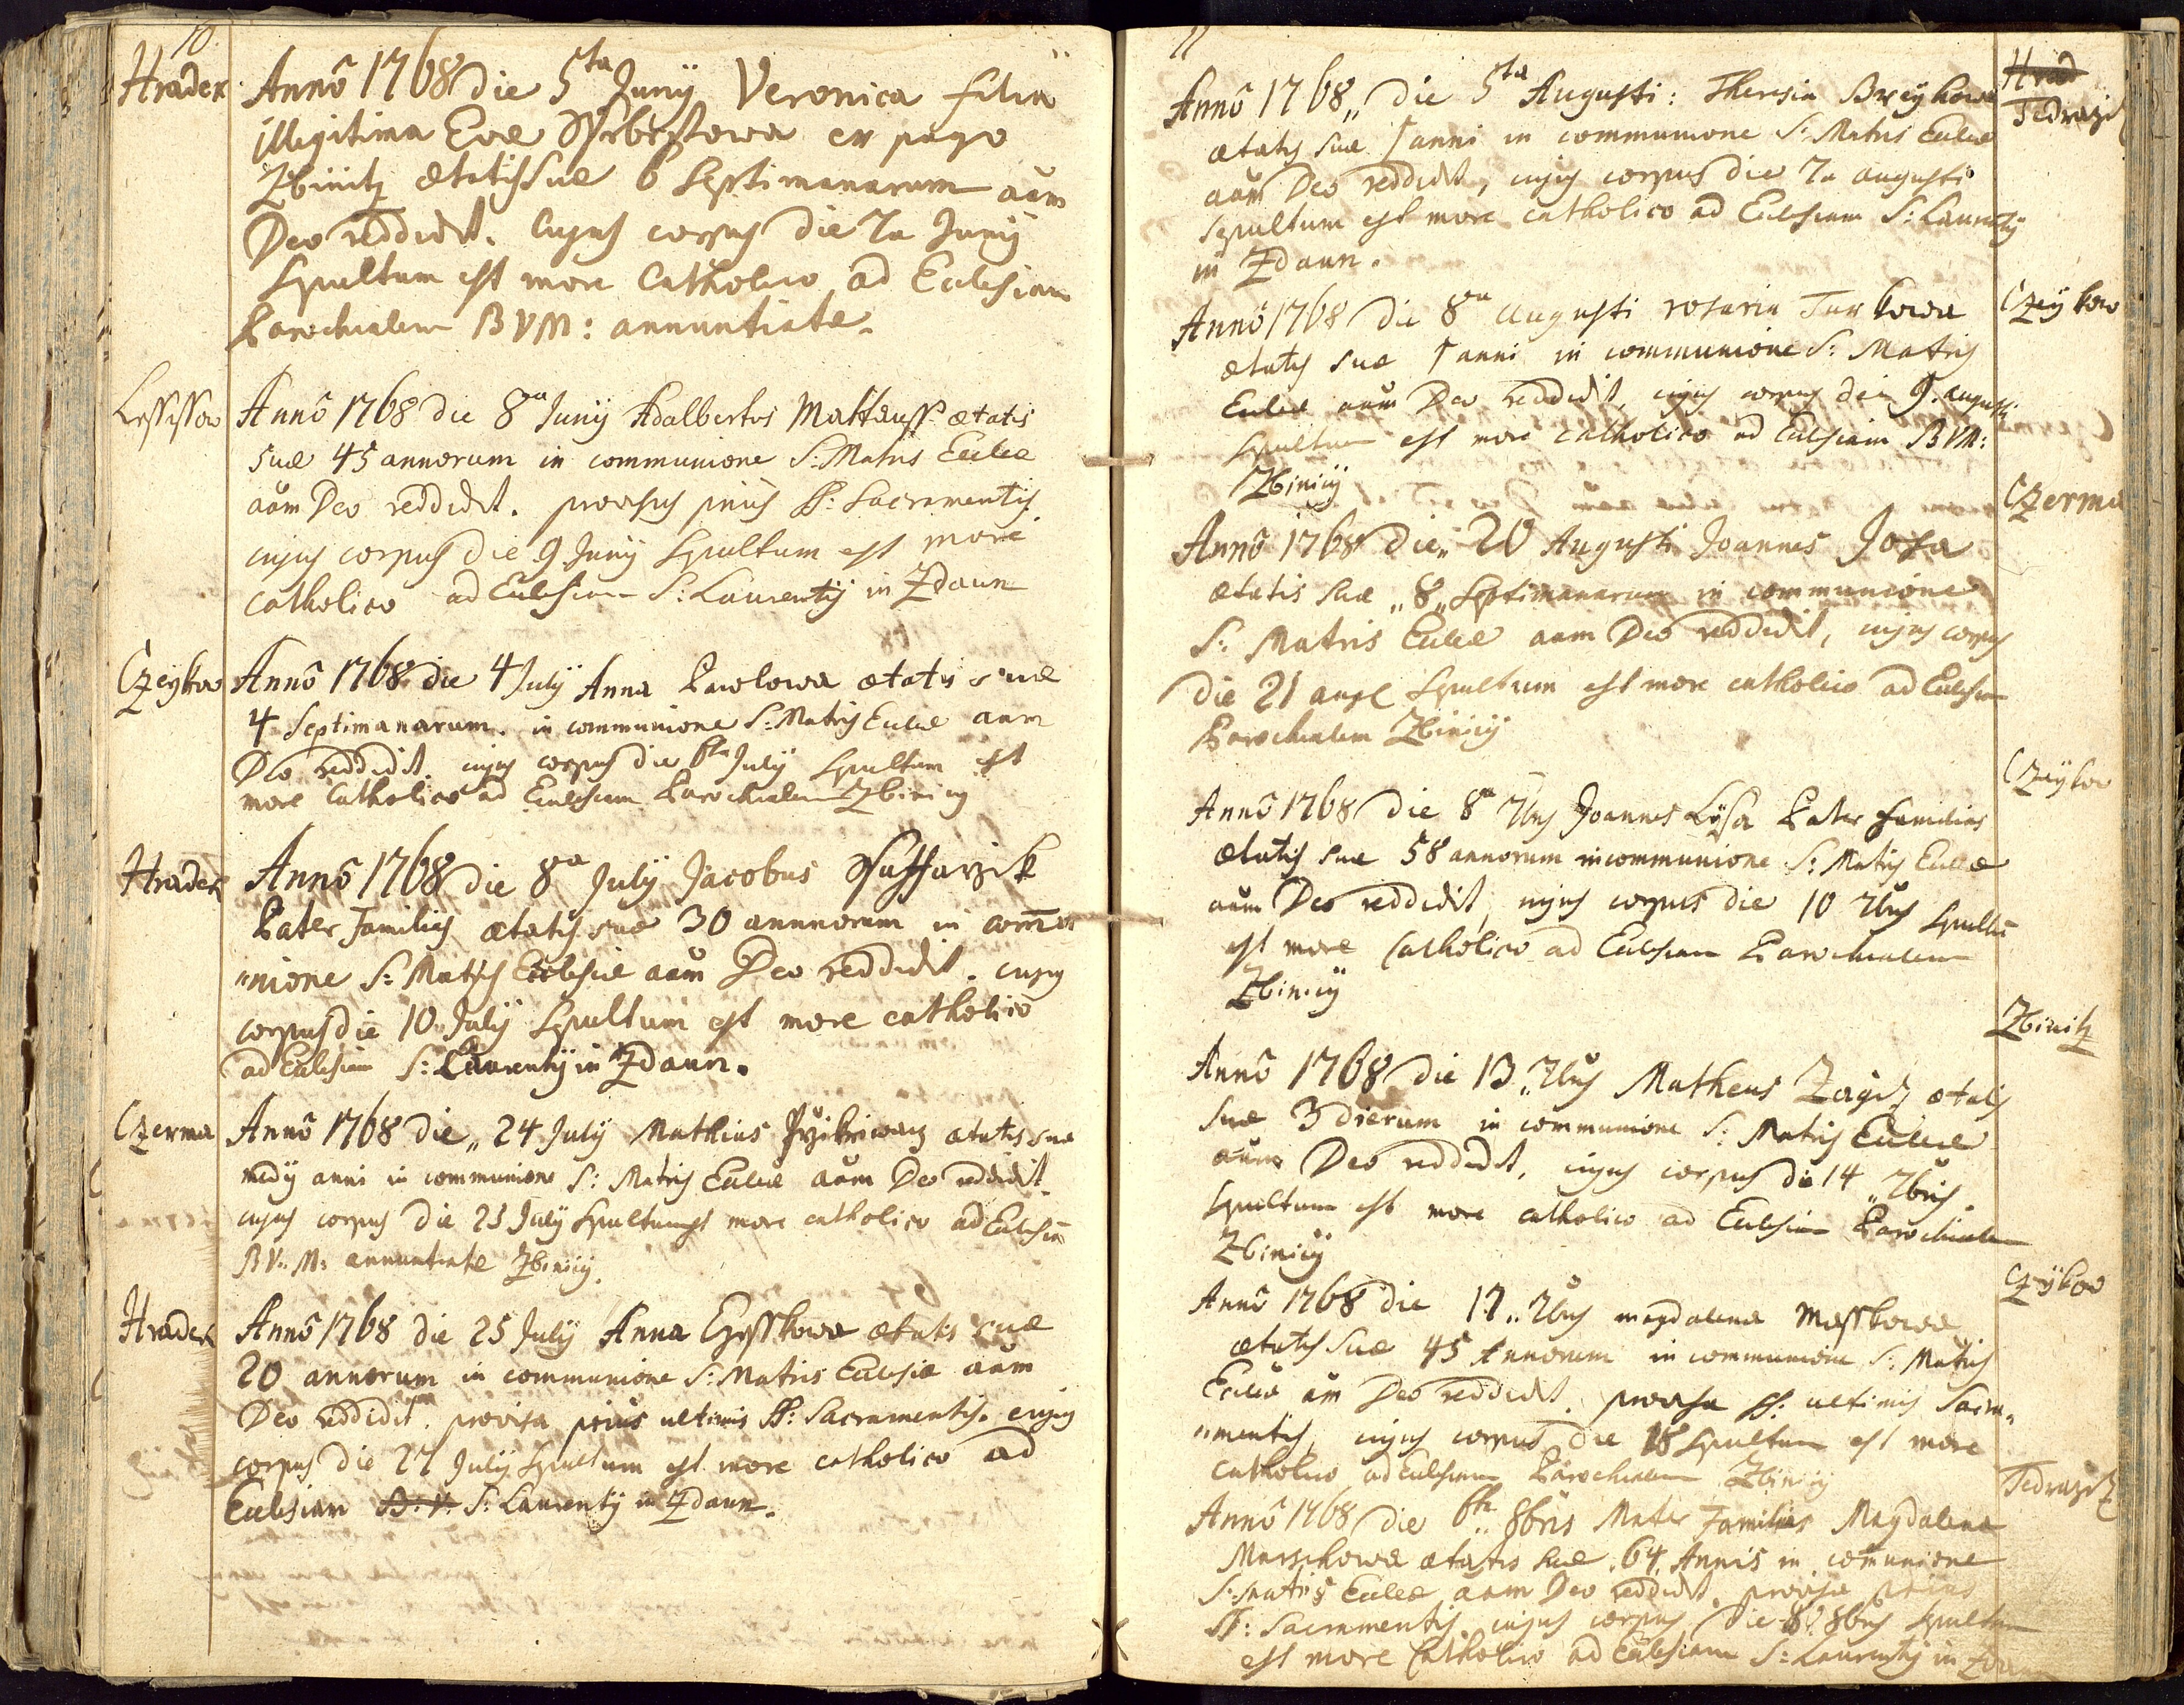 10
Hradek
Annô 1768 die 5ta Junÿ Veronica filia
illegitima Evæ ex pago
Zbinitz ætatis suæ 6 septimanarum aãm
Deo reddidit. Cujus corpus die 7a Junÿ
Sepultum est more Catholico ad Ecclesiam
Parochialem BVM: annuntiatæ.
Annô 1768 die 8va Junÿ Adalbertus ætatis
suæ 45 annorum in communione S: Matris Eccliæ
aãm Deo reddidit. provisus prius SS: Sacramentis.
cujus corpus die 9 Junÿ Sepultum est more
catholico ad Ecclesiam S: Laurentÿ in Zdaun
Czeykow
Annô 1768 die 4 Julÿ Anna Pawlowa ætatis suæ
4 Septimanarum. in communione S: Matris Eccliæ aam
Deo reddidit. cujus corpus die 6ta Julÿ Sepultum est
more Catholico ad Ecclesiam Parochialem Zbiniciÿ
Hradek
Annô 1768 die 8va Julÿ Jacobus
Pater Familias ætatis suæ 30 annnorum in com̄u
"nione S: Matris Ecclesiæ aãm Deo reddidit. cujus
corpus die 10. Julÿ Sepultum est more catholico
ad Ecclesiam S: Laurentÿ in Zdaun.
Czerma
Annô 1768 die „ 24 Julÿ Mathias ætatis suæ
medÿ anni in communione S: Matris Eccliæ aãm Deo reddidit.
cujus corpus die 25 Julÿ Sepultum est more catholico ad Ecclesiã
B V. M: annuntiatæ Zbiniciÿ.
Hradek
Annô 1768 die 25 Julÿ Anna ætatis suæ
20 annorum in communione S: Matris Ecclesiæ aãm
Deo reddidit. provisa prius ultimis SS: Sacramentis. cujus
corpus die 27 Julÿ Sepultum est more catholico ad
Ecclesiam B: V. S: Laurentÿ in Zdaun.
11
Hrad
Tedrazitz
Annô 1768 „ die 5ta Augusti: Theresia
ætatis suæ 1 anni in communione S: Matris Eccliæ
aãm Deo reddidit, cujus corpus die 7a augusti
sepultum est more catholico ad Ecclesiam S: Laurentÿ
in Zdaun.
Czeÿkow
Annô 1768 die 8va Augusti rosaria Turkowa
ætatis suæ 1 anni in communione S: Matris
Eccliæ aãm Deo reddidit, cujus corpus die 9. augusti
sepultum est more catholico ad Ecclesiam BVM:
Zbiniciÿ
Czerma
Annô 1768 die „ 20 Augusti Joannes
ætatis suæ „ 8 „ Septimanarum in communione
S: Matris Eccliæ aam Deo reddidit, cujus corpus
die 21 Sepultum est more catholico ad Ecclesiam
Parochialem Zbiniciÿ
Czeÿkow
Annô 1768 die 8va 7bris Joannes Lÿsa Pater familias
ætatis suæ 58 annorum in communione S: Matris Eccliæ
aãm Deo reddidit, cujus corpus die 10 7bris Sepultū
est more Catholico ad Ecclesiam Parochialem
Zbiniciÿ
Zbinitz
Annô 1768 die 13 „ 7bris Matheus ætatis
suæ 3 dierum in communione S: Matris Eccliæ
aãm Deo reddidit, cujus corpus die 14 „ 7bris.
sepultum est more catholico ad Ecclesiam Parochialem
Zbiniciÿ
Czeÿkow
Annô 1768 die 17 „ 7bris magdalena
ætatis suæ 45 Annorum in communione S: Matris
Eccliæ ãm Deo reddidit. provisa SS: ultimis Sacra„
"mentis, cujus corpus die 18 Sepultum est more
catholico ad Ecclesiam Parochialem Zbiniciÿ
Tedrazitz
Annô 1768 die 6ta 8bris Mater Familias Magdalena
ætatis suæ 64 Annis in com̄unione
S: Matris Eccliæ aam Deo reddidit. provisa prius
SS: Sacramentis. cujus corpus die 8 8bris Sepultum
est more Catholico ad Ecclesiam S: Laurentÿ in Zdaun